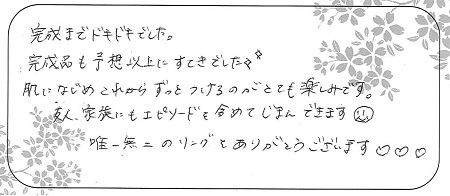 完成までドキドキでした。
完成品も予想以上にすてきでした
肌になじめこれからずっとつけるのがとても楽しみです。
友人、家族にもエピソードを含めてじまんできます
唯一無二のリングとありがとうございます♡♡♡